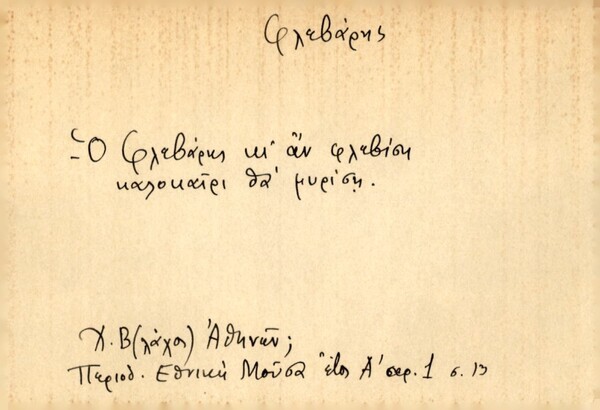 Φλεβάρης
- Ὁ Φλεβάρης κι' ἂν φλεβίση
καλοκαῖρι θὰ μυρίση.
Χ. Β(λάχος) Ἀθηνῶν;
Περιοδ. Ἐθνικὴ Μοῦσα ἔτος Α' αρ. 1 σ. 13